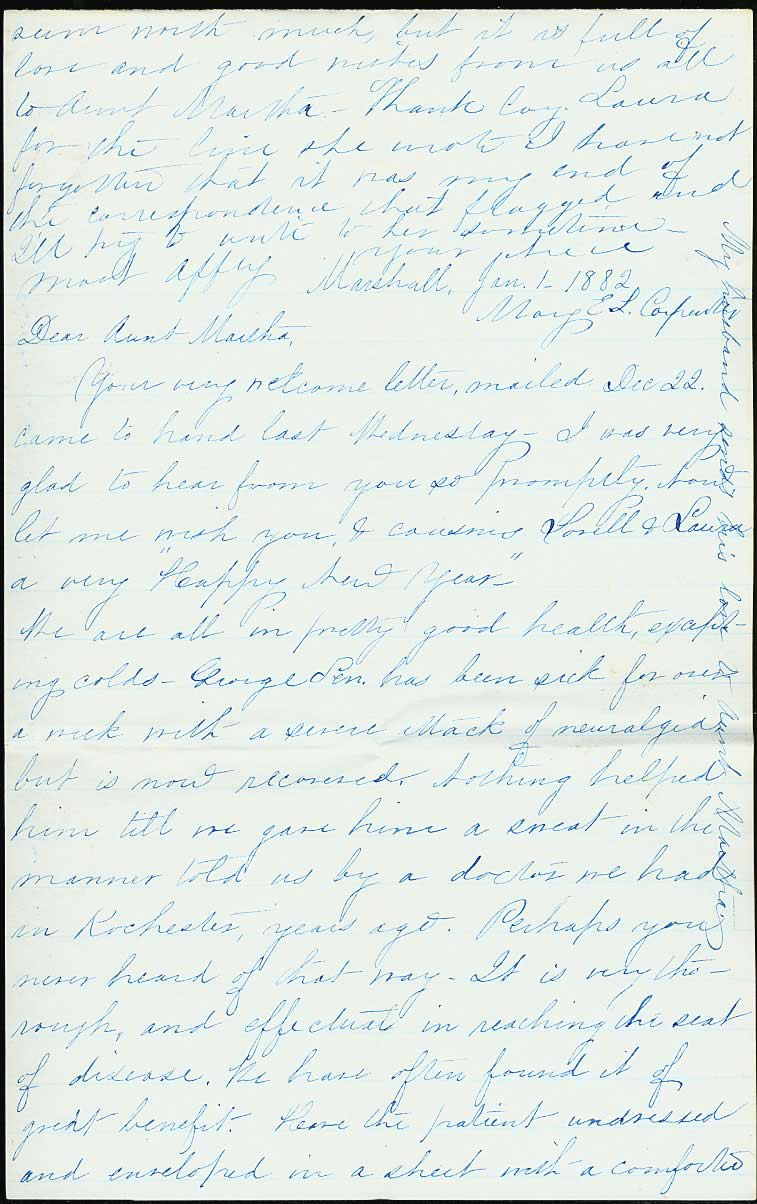 seem worth much, but it is full of
love and good wishes from us all
to Aunt Martha - Thank Cou. Laura
for the line she wrote I have not
forgotten that it was my end of
the correspondence that flagged and
I'll try to write to her sometime -
your niece
most affly
Marshall, Jan. 1 - 1882
Mary E L. Carpenter
Dear Aunt Martha,
Your very welcome letter, mailed Dec 22.
came to hand last Wednesday - I was very
glad to hear from you so promptly. Now
let me wish you, & cousins Lovell & Laura
a very "Happy New Year -"
We are all in pretty good health, except-
ing colds - George Sen. has been sick for over
a week with a severe attack of neuralgia,
but is now recovered. Nothing helped
him till we gave him a sweat in the
manner told us by a doctor we had
in Rochester, years ago. Perhaps you
never heard of that way - It is very tho-
rough, and effectual in reaching the seat
of disease. We have often found it of
great benefit. Have the patient undressed
and enveloped in a sheet with a comforter
My husband sends his love to Aunt Martha